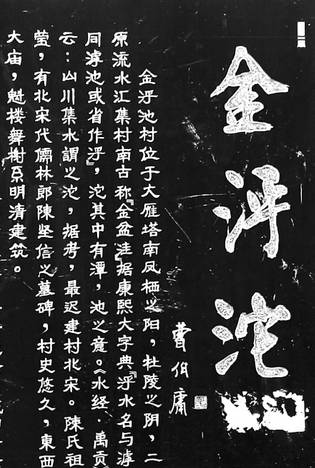 金泘沱
曹伯庸
金泘沱村位于大雁塔南凤栖之阳，杜陵之阴，二
原流水汇集村南古称“金盆洼”据康熙大字典“泘水名与滹
同滹沱或省作泘”，沱其中有潭，池之意。《水经，禹贡
云：山川集水謂之沱，据考，最迟建村北宋。陈氏祖
茔，有北宋代儒林郎陈坚信之墓碑，村史悠久，東西
大庙，魁楼舞榭系明清建筑。